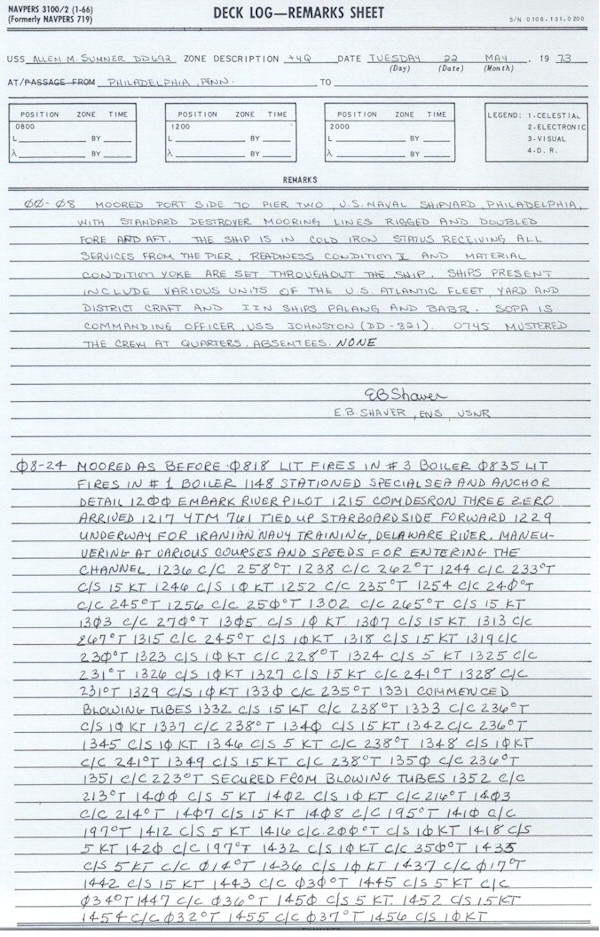 NAVPERS 3100/2 (1-66)
(Formerly NAVPERS 719)
DECK LOG—REMARKS SHEET
S/N 0106-131-0200
USS ALLEN M. SUMNER DD692 ZONE DESCRIPTION +4Q DATE TUESDAY 22 MAY, 19 73
(Day) (Date) (Month)
AT/PASSAGE FROM PHILADELPHIA, PENN. TO
POSITION ZONE TIME
0800
L BY
λ BY
POSITION ZONE TIME
1200
L BY
λ BY
POSITION ZONE TIME
2000
L BY
λ BY
LEGEND: 1-CELESTIAL
2-ELECTRONIC
3-VISUAL
4-D. R.
REMARKS
ØØ-Ø8 MOORED PORT SIDE TO PIER TWO, U.S. NAVAL SHIPYARD, PHILADELPHIA,
WITH STANDARD DESTROYER MOORING LINES RIGGED AND DOUBLED
FORE AND AFT. THE SHIP IS IN COLD IRON STATUS RECEIVING ALL
SERVICES FROM THE PIER, READINESS CONDITION V AND MATERIAL
CONDITION YOKE ARE SET THROUGHOUT THE SHIP. SHIPS PRESENT
INCLUDE VARIOUS UNITS OF THE U.S. ATLANTIC FLEET, YARD AND
DISTRICT CRAFT AND IIN SHIPS PALANG AND BABR. SOPA IS
COMMANDING OFFICER, USS JOHNSTON (DD-821). 0745 MUSTERED
THE CREW AT QUARTERS. ABSENTEES. NONE
EB Shaver
E.B. SHAVER, ENS, USNR
Ø8-24 MOORED AS BEFORE Ø818 LIT FIRES IN #3 BOILER Ø835 LIT
FIRES IN #1 BOILER 1148 STATIONED SPECIAL SEA AND ANCHOR
DETAIL 12ØØ EMBARK RIVER PILOT 1215 COMDESRON THREE ZERO
ARRIVED 1217 YTM 761 TIED UP STARBOARD SIDE FORWARD 1229
UNDERWAY FOR IRANIAN NAVY TRAINING, DELAWARE RIVER, MANEU-
VERING AT VARIOUS COURSES AND SPEEDS FOR ENTERING THE
CHANNEL. 1236 C/C 258°T 1238 C/C 262°T 1244 C/C 233°T
C/S 15 KT 1246 C/S 1Ø KT 1252 C/C 235°T 1254 C/C 24Ø°T
C/C 245°T 1256 C/C 25Ø°T 13Ø2 C/C 265°T C/S 15 KT
13Ø3 C/C 27Ø°T 13Ø5 C/S 1Ø KT 13Ø7 C/S 15 KT 1313 C/C
267°T 1315 C/C 245°T C/S 1Ø KT 1318 C/S 15 KT 1319 C/C
23Ø°T 1323 C/S 1Ø KT C/C 228°T 1324 C/S 5 KT 1325 C/C
231°T 1326 C/S 1Ø KT 1327 C/S 15 KT C/C 241°T 1328 C/C
231°T 1329 C/S 1Ø KT 133Ø C/C 235°T 1331 COMMENCED
BLOWING TUBES 1332 C/S 15 KT C/C 238°T 1333 C/C 236°T
C/S 1Ø KT 1337 C/C 238°T 134Ø C/S 15 KT 1342 C/C 236°T
1345 C/S 1Ø KT 1346 C/S 5 KT C/C 238°T 1348 C/S 1Ø KT
C/C 241°T 1349 C/S 15 KT C/C 238°T 135Ø C/C 236°T
1351 C/C 223°T SECURED FROM BLOWING TUBES 1352 C/C
213°T 14ØØ C/S 5 KT 14Ø2 C/S 1Ø KT C/C 216°T 14Ø3
C/C 214°T 14Ø7 C/S 15 KT 14Ø8 C/C 195°T 141Ø C/C
197°T 1412 C/S 5 KT 1416 C/C 2ØØ°T C/S 1Ø KT 1418 C/S
5 KT 142Ø C/C 197°T 1432 C/S 1Ø KT C/C 35Ø°T 1435
C/S 5 KT C/C Ø14°T 1436 C/S 1Ø KT 1437 C/C Ø17°T
1442 C/S 15 KT 1443 C/C Ø3Ø°T 1445 C/S 5 KT C/C
Ø34°T 1447 C/C Ø36°T 145Ø C/S 5 KT 1452 C/S 15 KT
1454 C/C Ø32°T 1455 C/C Ø37°T 1456 C/S 1Ø KT